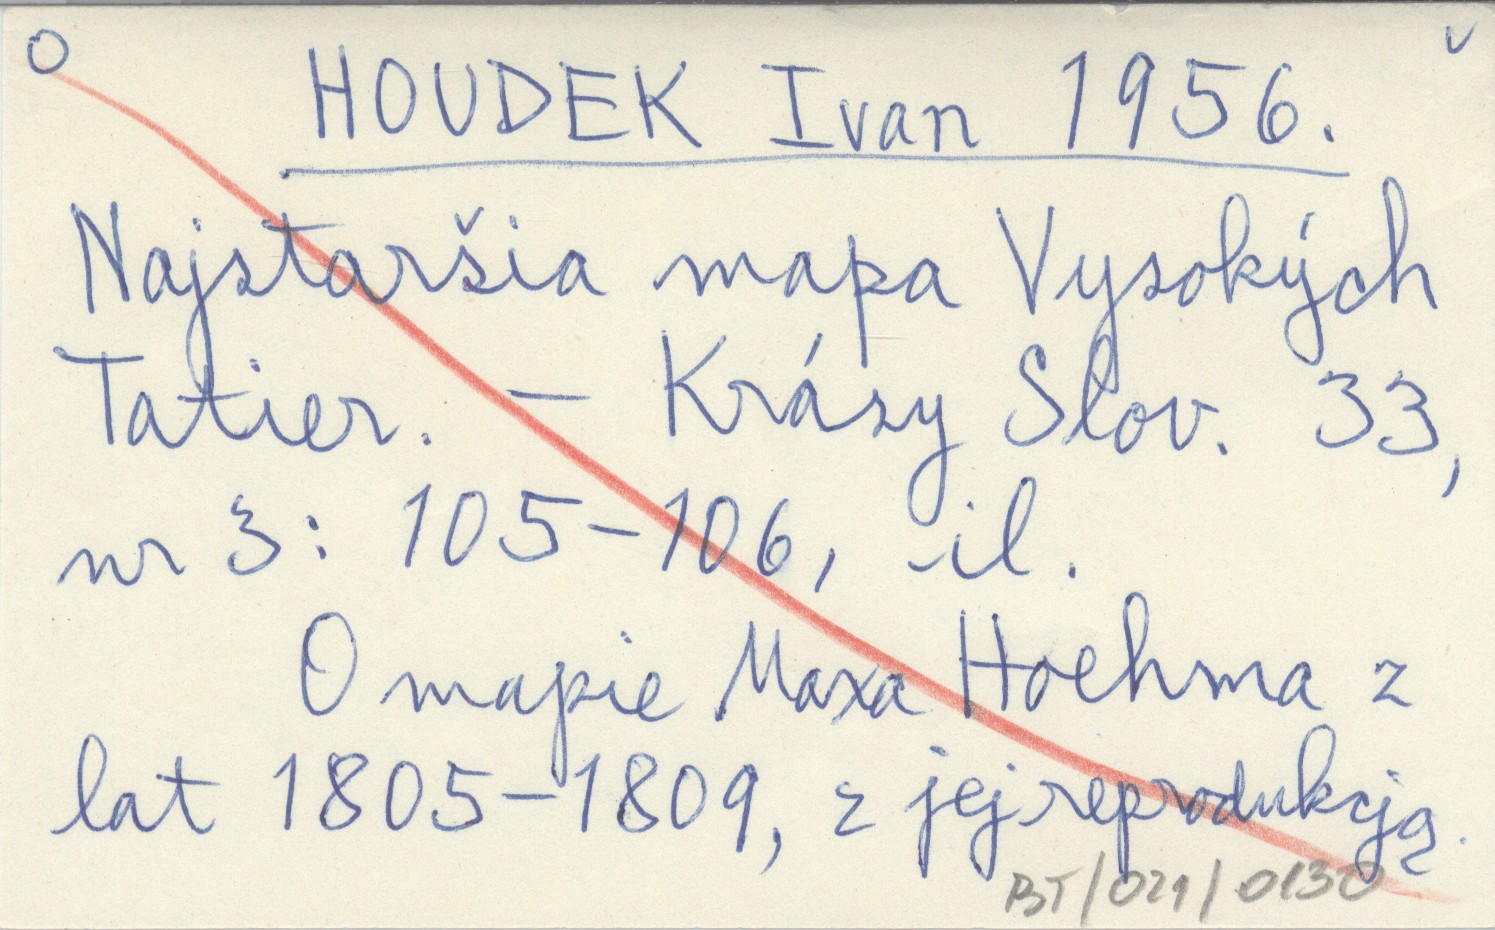 O
HOUDEK Ivan 1956.
Najstaršia mapa Vysokých
Tatier. - Krásy Slov. 33,
nr 3: 105-106, il.
O mapie Maxa Hoehma z
lat 1805-1809, z jej reprodukcją.
BT/029/0130